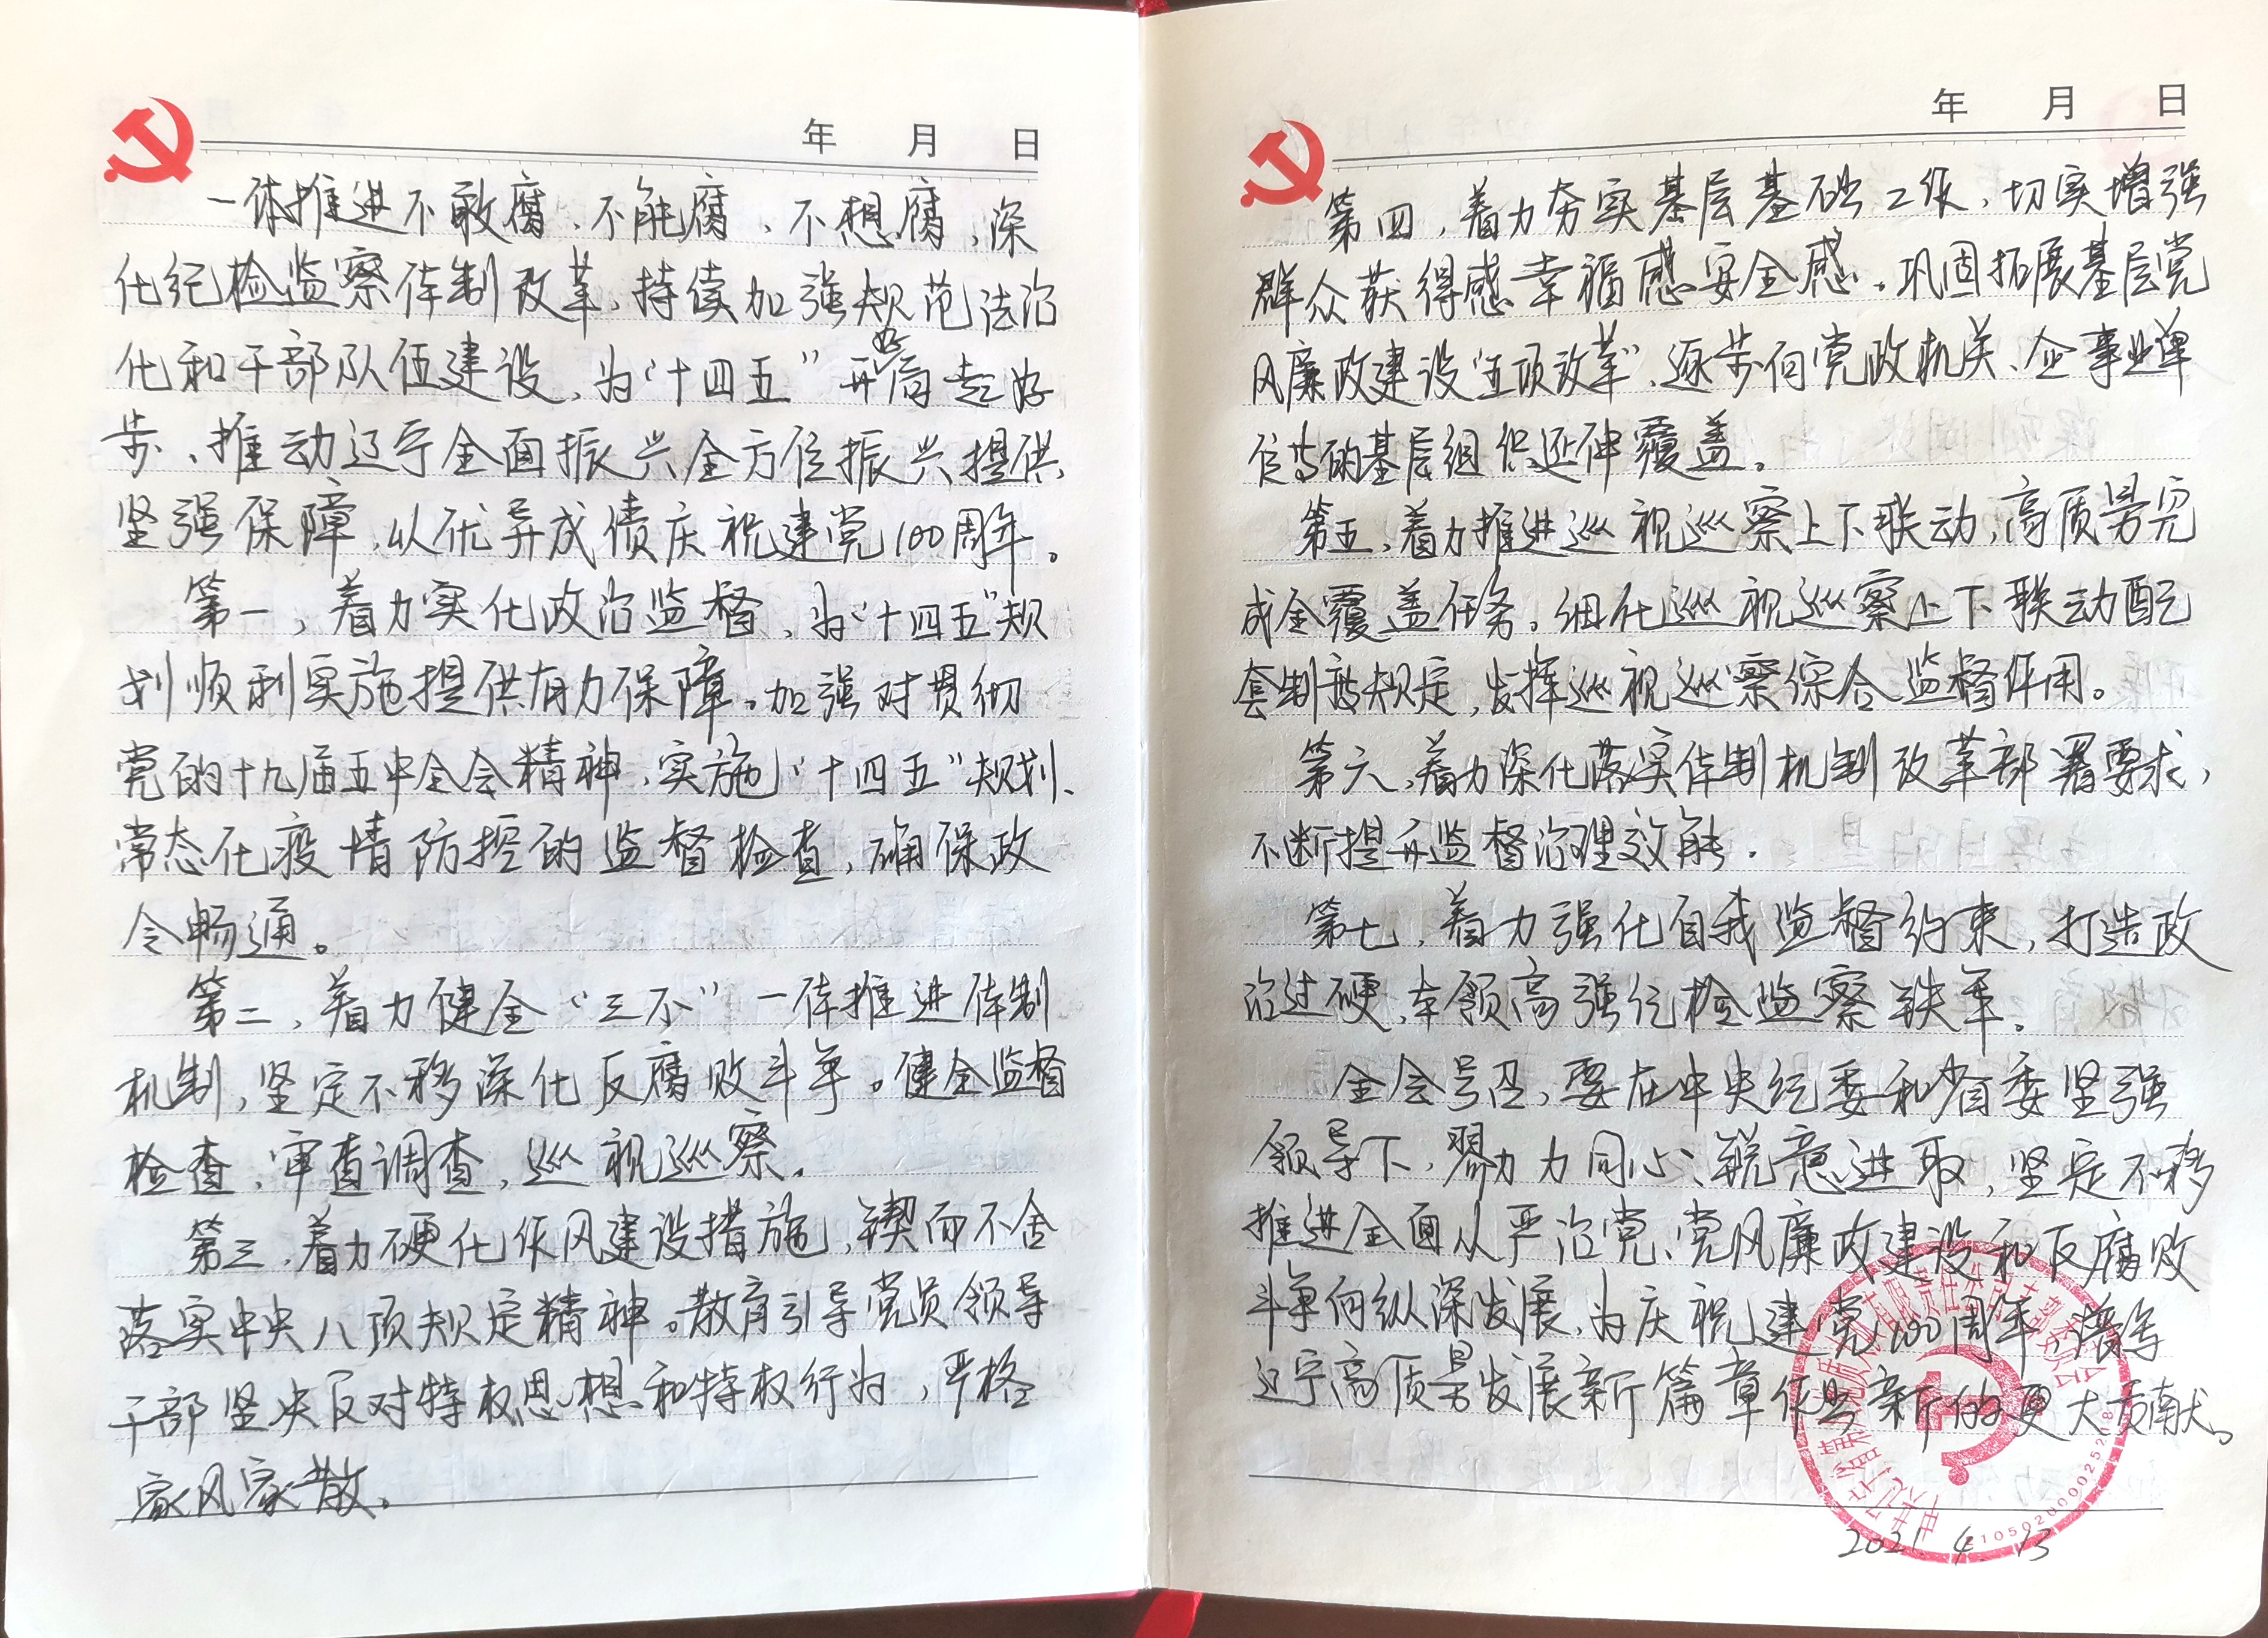 年 月 日
一体推进不敢腐、不能腐、不想腐,深
化纪检监察体制改革,持续加强规范法治
化和干部队伍建设,为“十四五”开好局起好
步、推动辽宁全面振兴全方位振兴提供
坚强保障,以优异成绩庆祝建党100周年。
第一,着力实化政治监督,为“十四五”规
划顺利实施提供有力保障。加强对贯彻
党的十九届五中全会精神、实施“十四五”规划、
常态化疫情防控的监督检查,确保政
令畅通。
第二,着力健全“三不”一体推进体制
机制,坚定不移深化反腐败斗争。健全监督
检查,审查调查,巡视巡察。
第三,着力硬化作风建设措施,锲而不舍
落实中央八项规定精神。教育引导党员领导
干部坚决反对特权思想和特权行为,严格
家风家教。
年 月 日
第四,着力夯实基层基础工作,切实增强
群众获得感幸福感安全感。巩固拓展基层党
风廉政建设“五项改革”,逐步向党政机关、企事业单
位等的基层组织延伸覆盖。
第五,着力推进巡视巡察上下联动,高质量完
成全覆盖任务。细化巡视巡察上下联动配
套制度规定,发挥巡视巡察综合监督作用。
第六,着力深化落实体制机制改革部署要求,
不断提升监督治理效能.
第七,着力强化自我监督约束,打造政
治过硬,本领高强纪检监察铁军。
全会号召,要在中央纪委和省委坚强
领导下,勠力同心、锐意进取,坚定不移
推进全面从严治党、党风廉政建设和反腐败
斗争向纵深发展,为庆祝建党100周年,谱写
辽宁高质量发展新篇章作出新的更大贡献。
2021.4.13